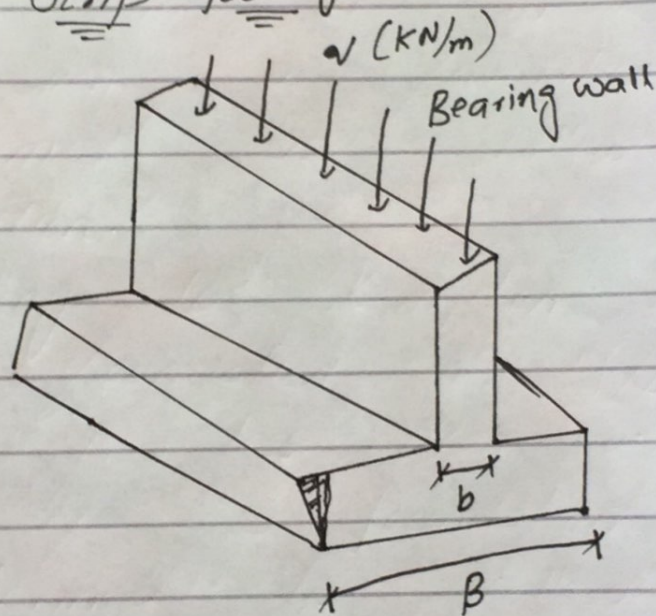 q (KN/m)
Bearing wall
b
B